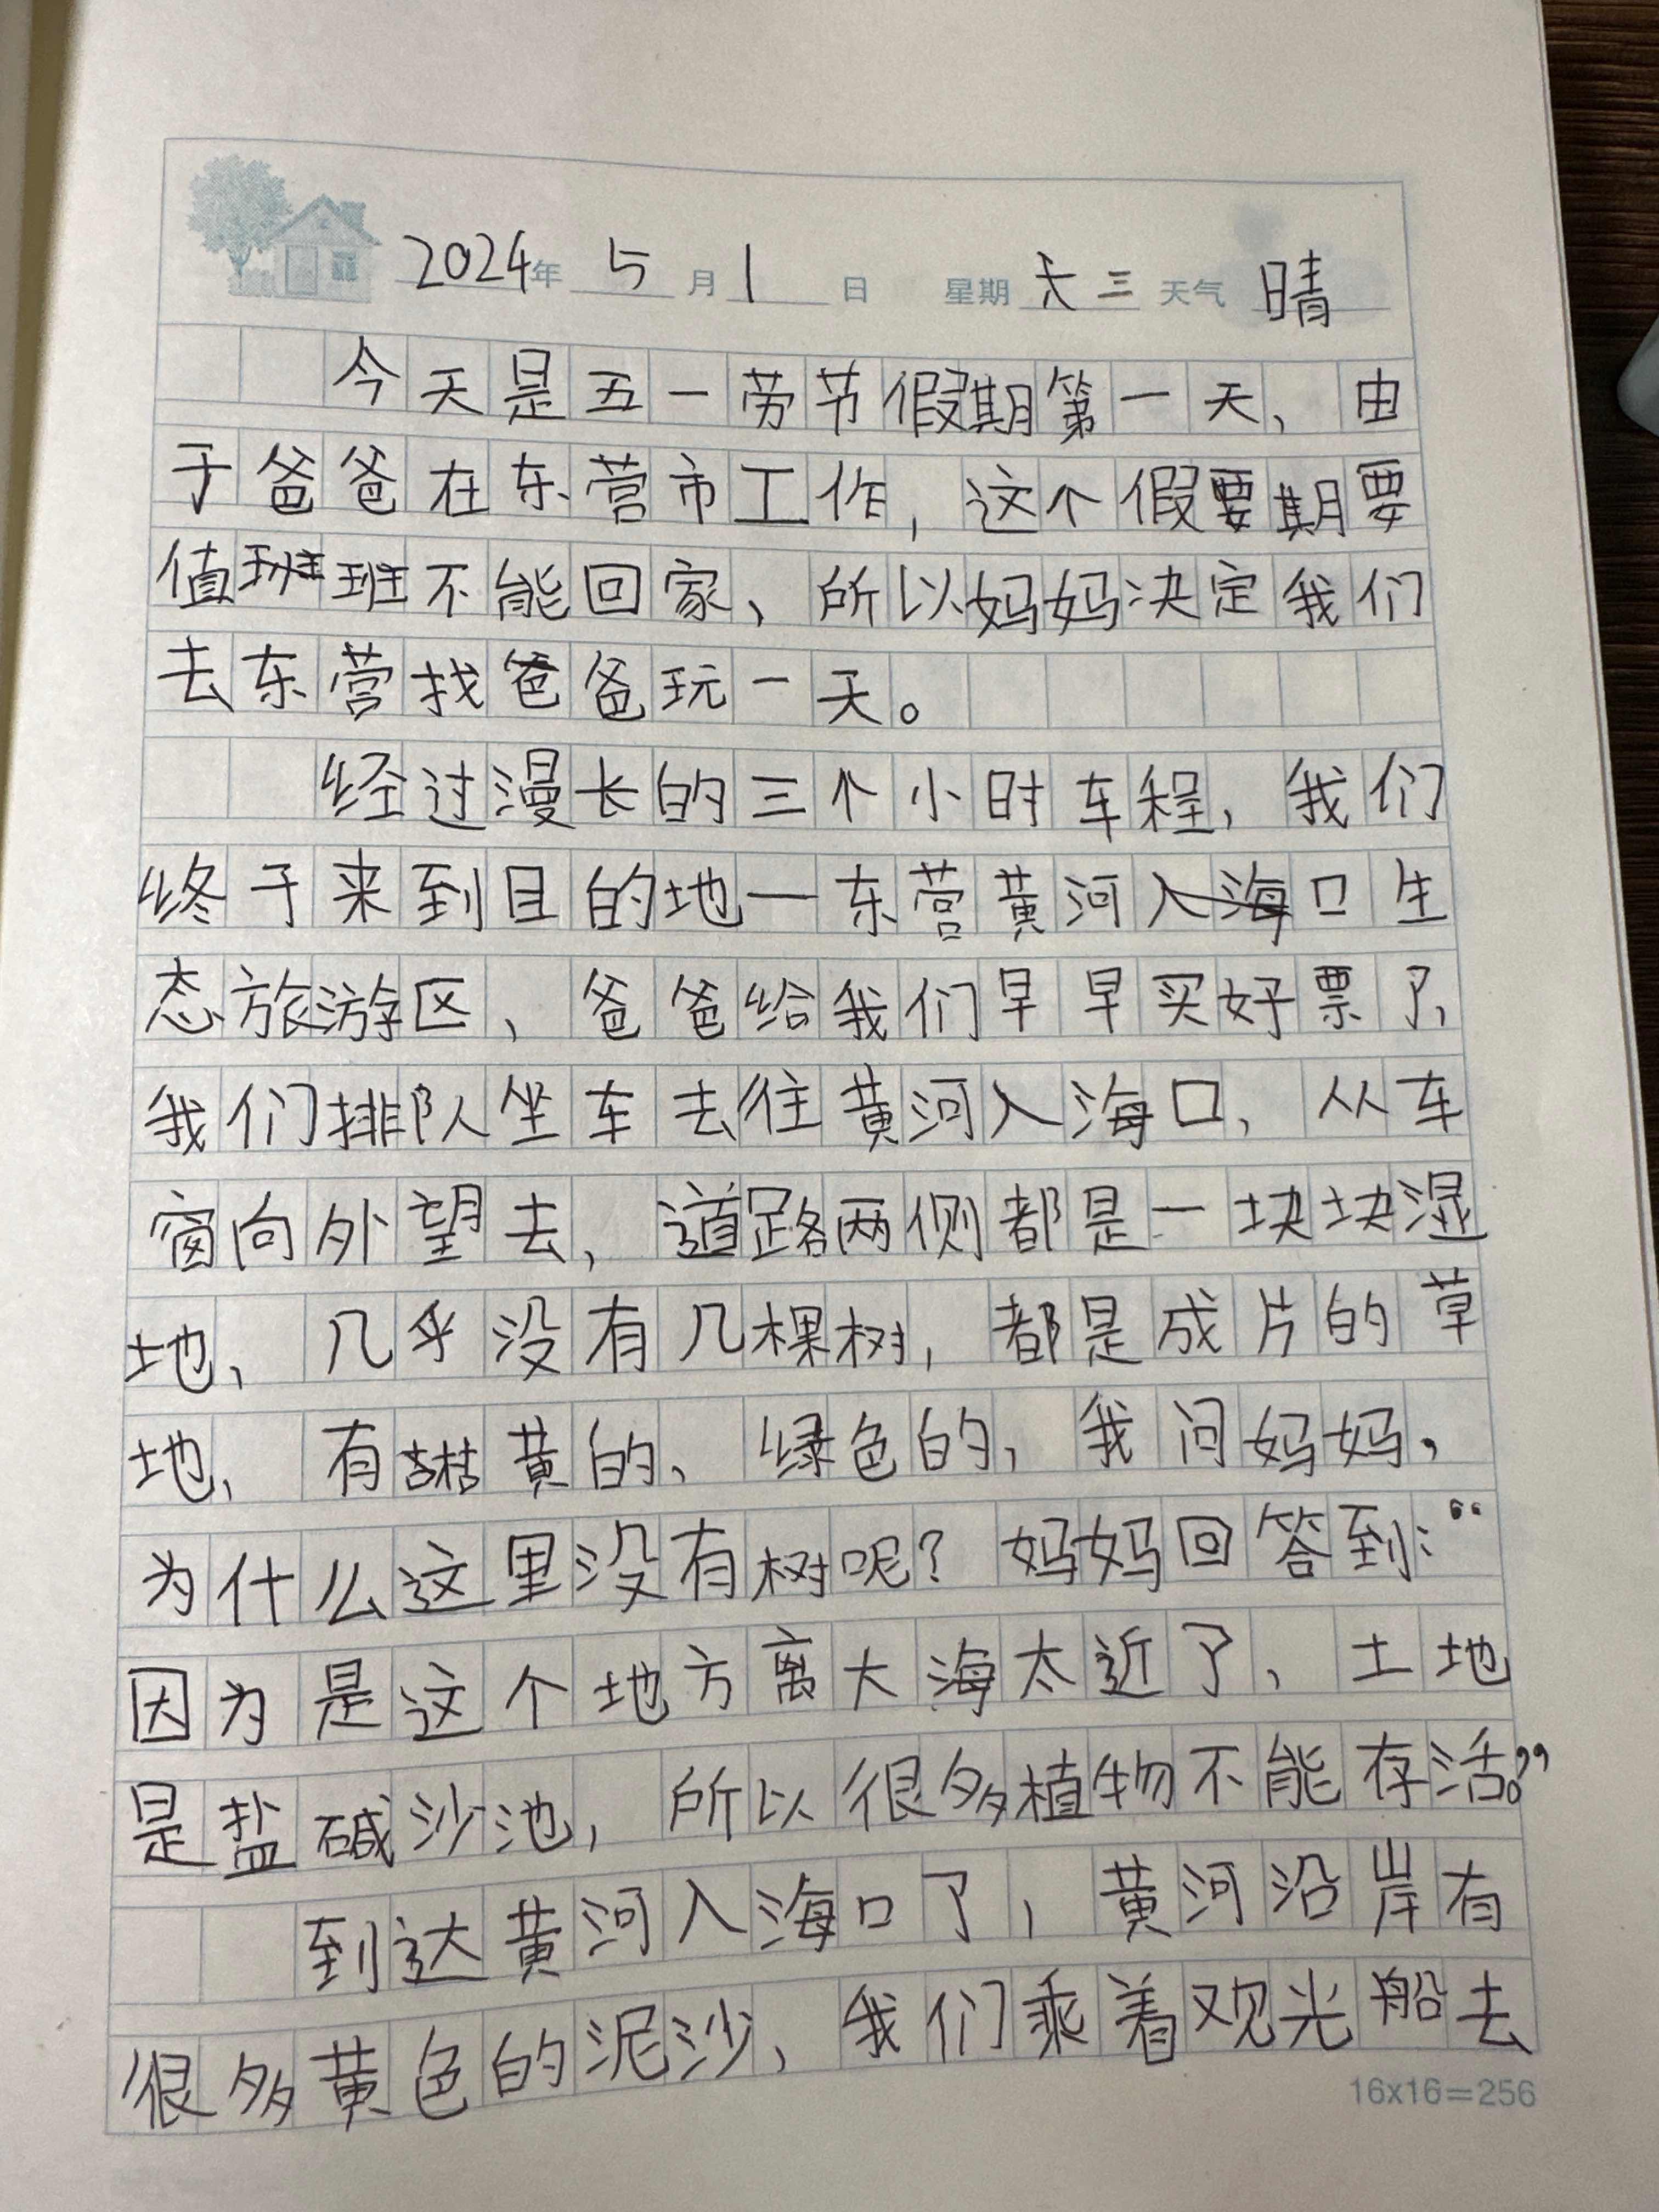 2024年 5月1日 星期 三 天气 晴
今天是五一劳节假期第一天，由
于爸爸在东营市工作，这个假要期要
值班班不能回家，所以妈妈决定我们
去东营找爸爸玩一天。
经过漫长的三个小时车程，我们
终于来到目的地—东营黄河入海口生
态旅游区，爸爸给我们早早买好票了，
我们排队坐车去往黄河入海口，从车
窗向外望去，道路两侧都是一块块湿
地，几乎没有几棵树，都是成片的草
地，有黄的、绿色的，我问妈妈，
为什么这里没有树呢？妈妈回答到：“
因为是这个地方离大海太近了，土地
是盐碱沙池，所以很多植物不能存活。”
到达黄河入海口了，黄河沿岸有
很多黄色的泥沙，我们乘着观光船去
16x16=256